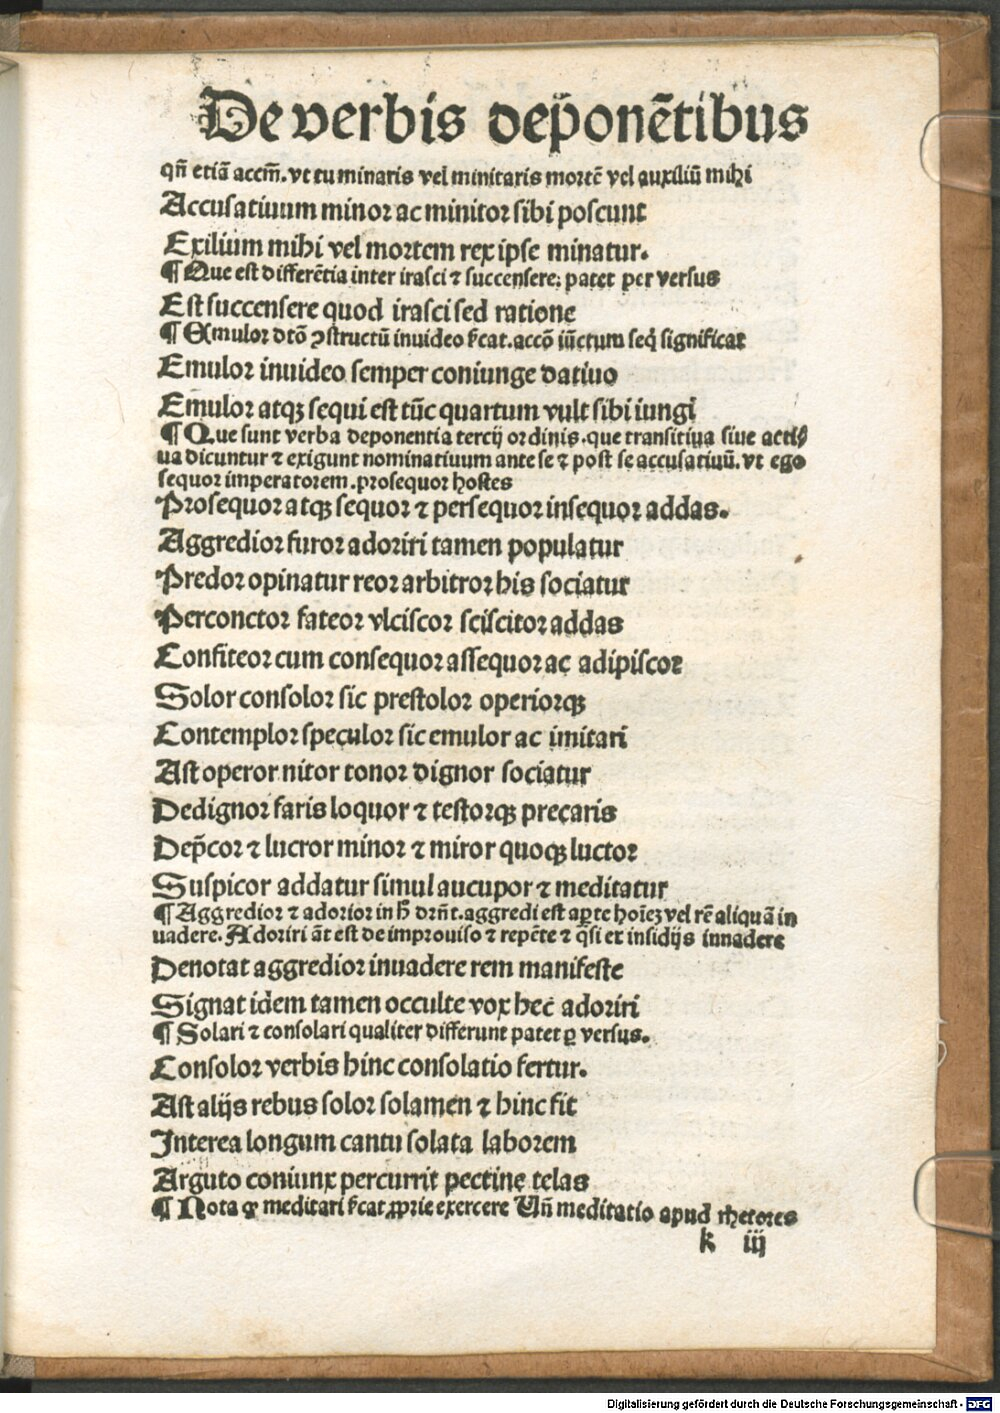 De verbis dep̄onētibus
qn̄ etiā accm̄. vt tu minaris vel minitaris mortē vel auxiliū mihi
Accusatiuum minor ac minitor sibi poscunt
Exilium mihi vel mortem rex ipse minatur.
¶ Que est differētia inter irasci ⁊ succensere: patet per versus
Est succensere quod irasci sed ratione
¶ Emulor dtō ꝯstructū inuideo ſcat. accō iūctum seq̄ significat
Emulor inuideo semper coniunge datiuo
Emulor atqꝫ sequi est tūc quartum vult sibi iungi
¶ Que sunt verba deponentia tercij ordinis. que transitiua siue acti⸗
ua dicuntur ⁊ exigunt nominatiuum ante se ⁊ post se accusatiuū. vt ego
sequor imperatorem. prosequor hostes
Prosequor atqꝫ sequor ⁊ persequor insequor addas.
Aggredior furor adoriri tamen populatur
Predor opinatur reor arbitror his sociatur
Perconctor fateor vlciscor sciscitor addas
Confiteor cum consequor assequor ac adipiscor
Solor consolor sic prestolor operiorqꝫ
Contemplor speculor sic emulor ac imitari
Ast operor nitor conor dignor sociatur
Dedignor faris loquor ⁊ testorqꝫ precaris
Dep̄cor ⁊ lucror minor ⁊ miror quoqꝫ luctor
Suspicor addatur simul aucupor ⁊ meditatur
¶ Aggredior ⁊ adorior in h̄ drn̄t. aggredi est aꝑte hoīeꝫ vel rē aliquā in
uadere. Adoriri āt est de improuiso ⁊ repēte ⁊ q̄si ex insidijs innadere
Denotat aggredior inuadere rem manifeste
Signat idem tamen occulte vox hec adoriri
¶ Solari ⁊ consolari qualiter differunt patet ꝑ versus.
Consolor verbis hinc consolatio fertur.
Ast alijs rebus solor solamen ⁊ hinc fit
Interea longum cantu solata laborem
Arguto coniunx percurrit pectine telas
¶ Nota ꝙ meditari ſcat ꝓprie exercere Vn̄ meditatio apud rhetores
k iij
Digitalisierung gefördert durch die Deutsche Forschungsgemeinschaft - DFG